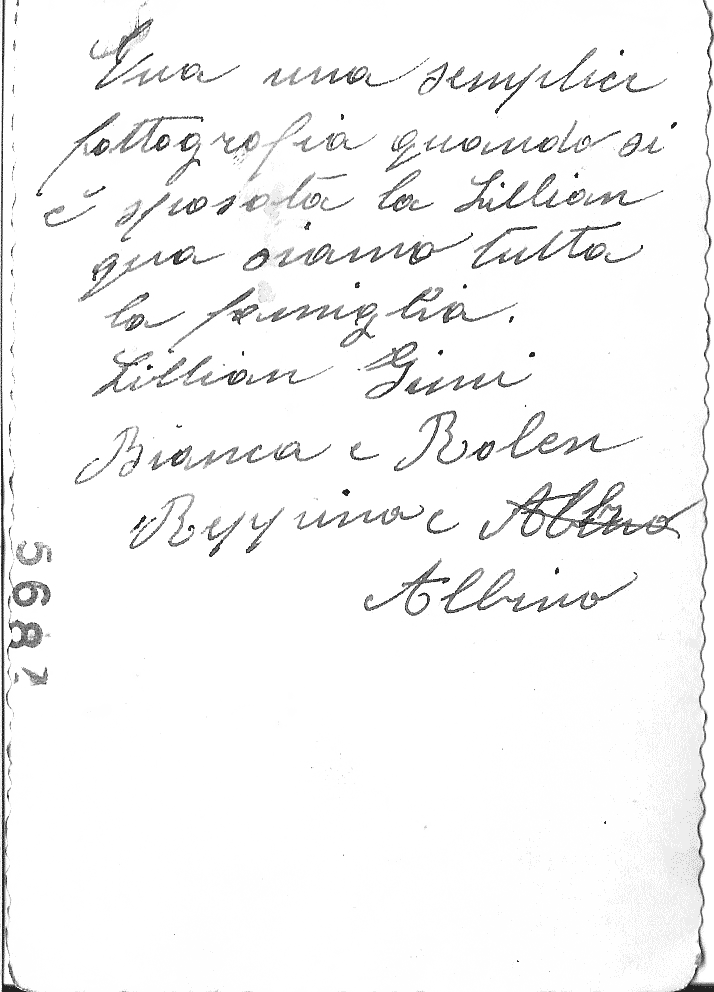 una semplice
fottografia quando si
è sposata la Lillian
qua siamo tutta
la famiglia.
Lillian Gimi
Bianca e Rolen
Peppina e Albino
Albino
5687